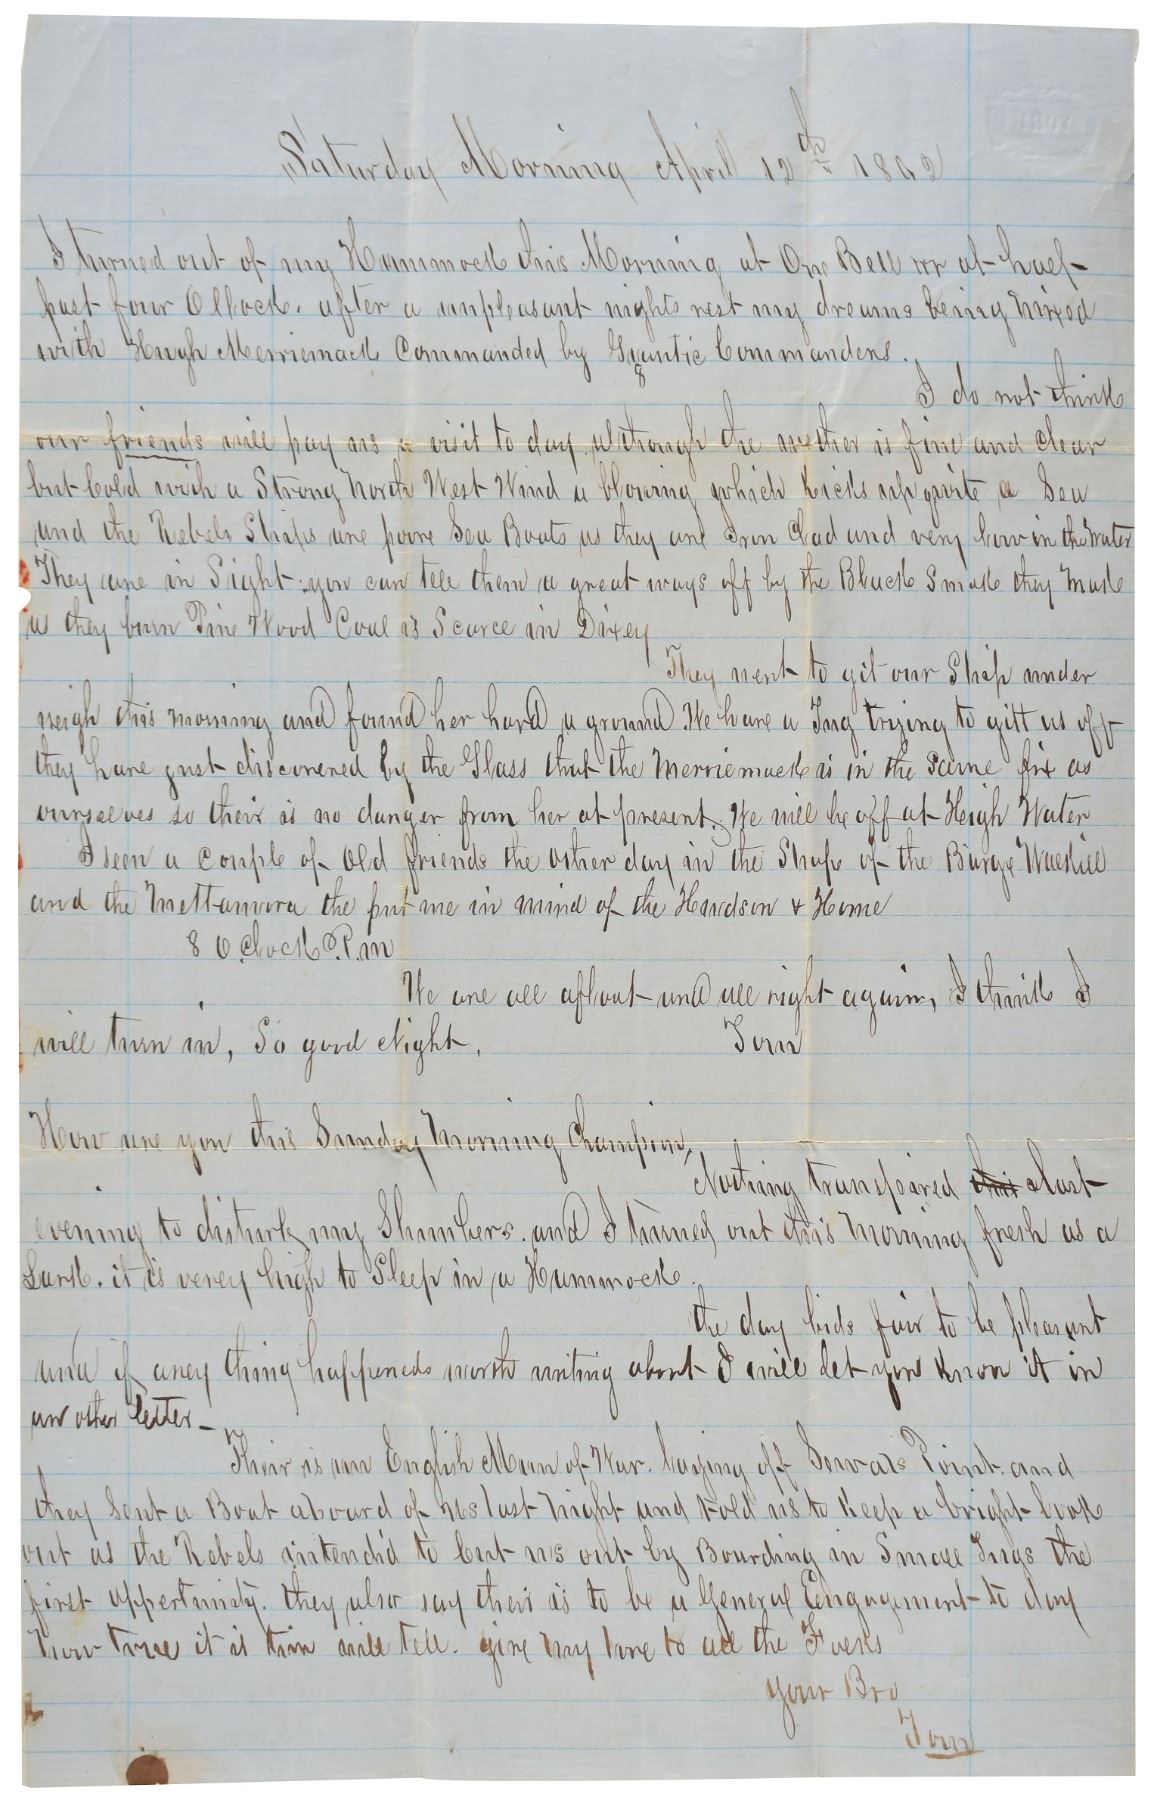 Saturday Morning April 12th 1862
I turned out of my Hammock this Morning at One Bell or at half
past four O Clock. after a unpleasant nights rest my dreams being Mixed
with Hugh Merriemack Commanded by Gigantic Commanders.
I do not think
our friends will pay us a visit to day although the wether is fine and Clear
but Cold with a Strong North West Wind a blowing which kicks up quite a Sea
and the Rebels Ships are poore Sea Boats as they are Iron Clad and very low in the Water
They are in Sight. you can tell them a great ways off by the Black Smok they Make
as they burn Pine Wood Coal is Scarce in Dixey
They went to git our Ship under
weigh this morning and found her hard a ground We have a Tug trying to gitt us off
they have just discovered by the Glass that the Merriemack is in the Same fix as
ourselves so their is no danger from her at present. We will be off at Heigh Water
I seen a couple of Old friends the other day in the Shap of the Barge
and the Mettamora the put me in mind of the Hardson & Home
8 O.Clock P.m
We are all afloat and all right again, I think I
will turn in, So good Night. Tom
How are you this Sunday Morning Champion,
Nothing transpired this last
evening to disturb my Slumbers. and I turned out this Morning fresh as a
Lark. it is verey high to Sleep in a Hammock.
the day bids fair to be pleasant
and if aney thing happeneds worth writing about I will let you know it in
an other letter -
Their is an English Man of War. laying off Sewals Point. and
they Sent a Boat aboard of us last Night and told us to keep a bright look
out as the Rebels intend'd to Cut us out by Boarding in Small Tugs the
first oppertunity. they also say their is to be a General Engagement to day
how true it is tim will tell. give my love to all the Foeks
your Bro
Tom